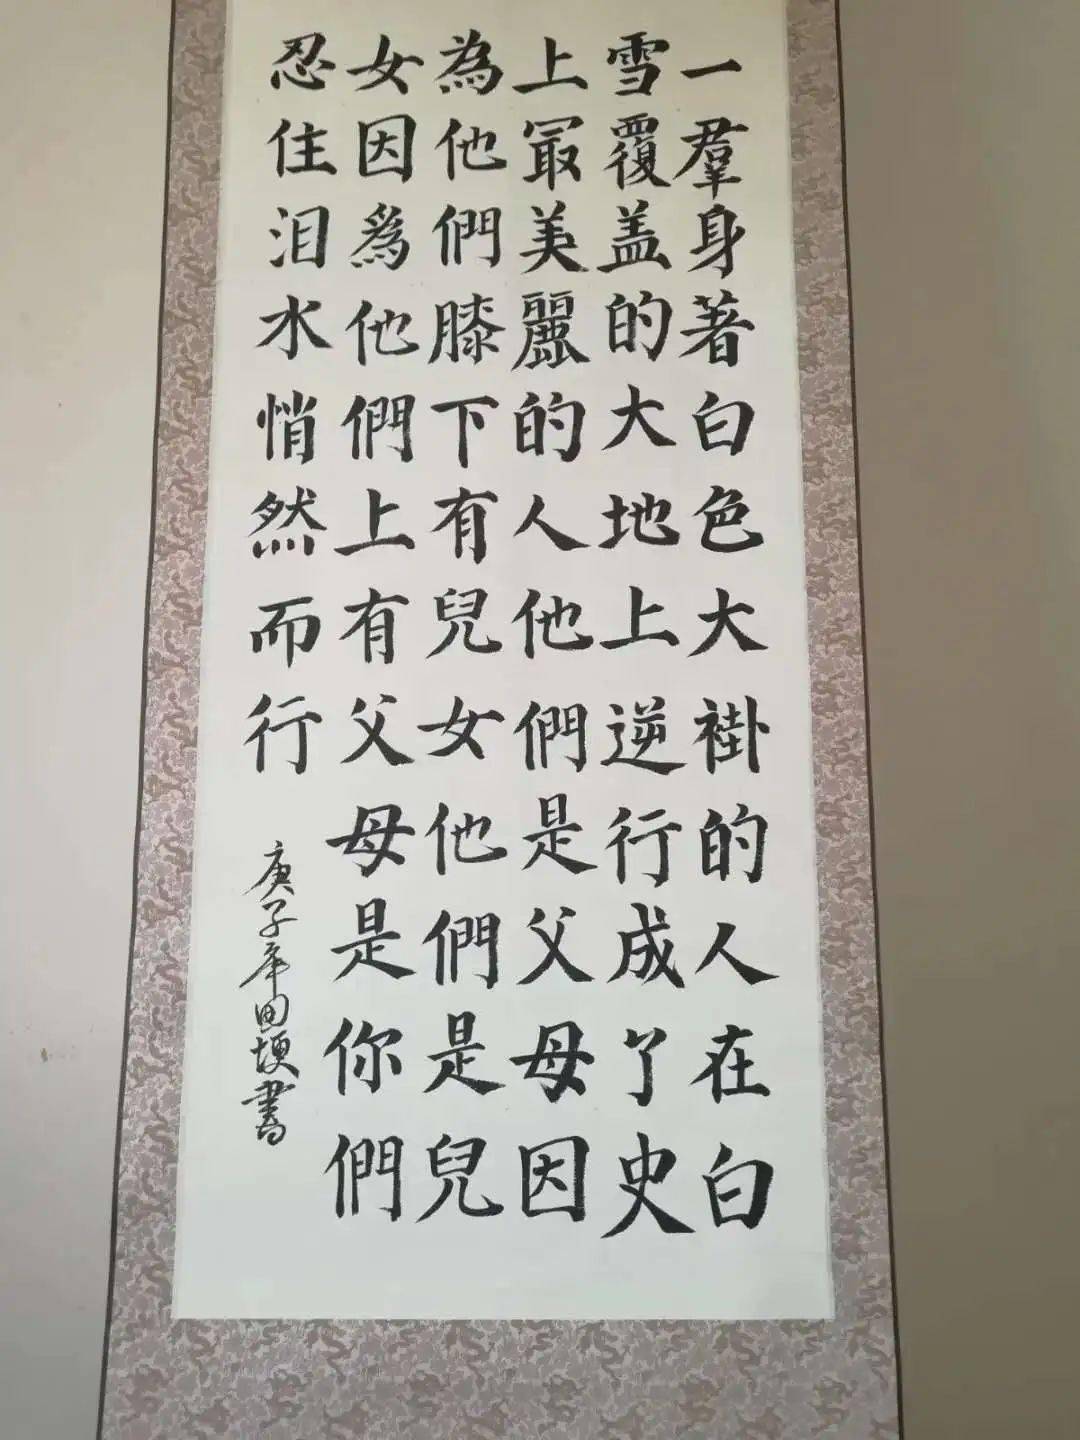 一羣身著白色大褂的人在白
雪覆盖的大地上逆行成了史
上冣美麗的人他們是父母因
為他們膝下有兒女他們是兒
女因爲他們上有父母是你們
忍住泪水悄然而行
庚子年田埂書